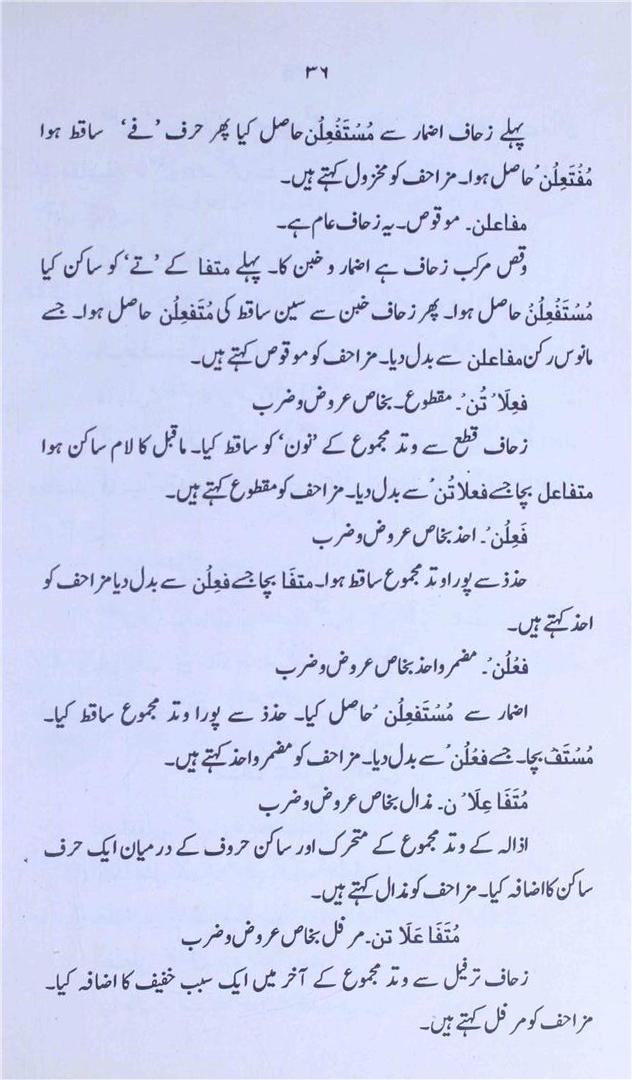 ۳۶
پہلے زحاف اضمار سے مُسْتَفْعِلُن حاصل کیا پھر حرف ’فے‘ ساقط ہوا
مُفْتَعِلُن حاصل ہوا۔ مزاحف کو مخزول کہتے ہیں۔
مفاعلن۔ موقوص۔ یہ زحاف عام ہے۔
وقص مرکب زحاف ہے اضمار و خبن کا۔ پہلے متفا کے ’تے‘ کو ساکن کیا
مُسْتَفْعِلُنْ حاصل ہوا۔ پھر زحاف خبن سے سین ساقط کی مُتَفْعِلُن حاصل ہوا۔ جسے
مانوس رکن مفاعلن سے بدل دیا۔ مزاحف کو موقوص کہتے ہیں۔
فَعِلَا تُن۔ مقطوع۔ بخاص عروض و ضرب
زحاف قطع سے وتد مجموع کے ’نون‘ کو ساقط کیا۔ ماقبل کا لام ساکن ہوا
متفاعل بچا جسے فعلاتُن سے بدل دیا۔ مزاحف کو مقطوع کہتے ہیں۔
فَعِلُن۔ احذ بخاص عروض و ضرب
حذذ سے پورا وتد مجموع ساقط ہوا۔ متفَا بچا جسے فعِلُن سے بدل دیا مزاحف کو
احذ کہتے ہیں۔
فعْلُن۔ مضمر و احذ بخاص عروض و ضرب
اضمار سے مُسْتَفْعِلُن حاصل کیا۔ حذذ سے پورا وتد مجموع ساقط کیا۔
مُسْتَفْ بچا۔ جسے فعْلُن سے بدل دیا۔ مزاحف کو مضمر و احذ کہتے ہیں۔
مُتَفَا عِلَا ن۔ مذال بخاص عروض و ضرب
اذالہ کے وتد مجموع کے متحرک اور ساکن حروف کے درمیان ایک حرف
ساکن کا اضافہ کیا۔ مزاحف کو مذال کہتے ہیں۔
مُتَفَا عَلَا تن۔ مرفل بخاص عروض و ضرب
زحاف ترفیل سے وتد مجموع کے آخر میں ایک سبب خفیف کا اضافہ کیا۔
مزاحف کو مرفل کہتے ہیں۔